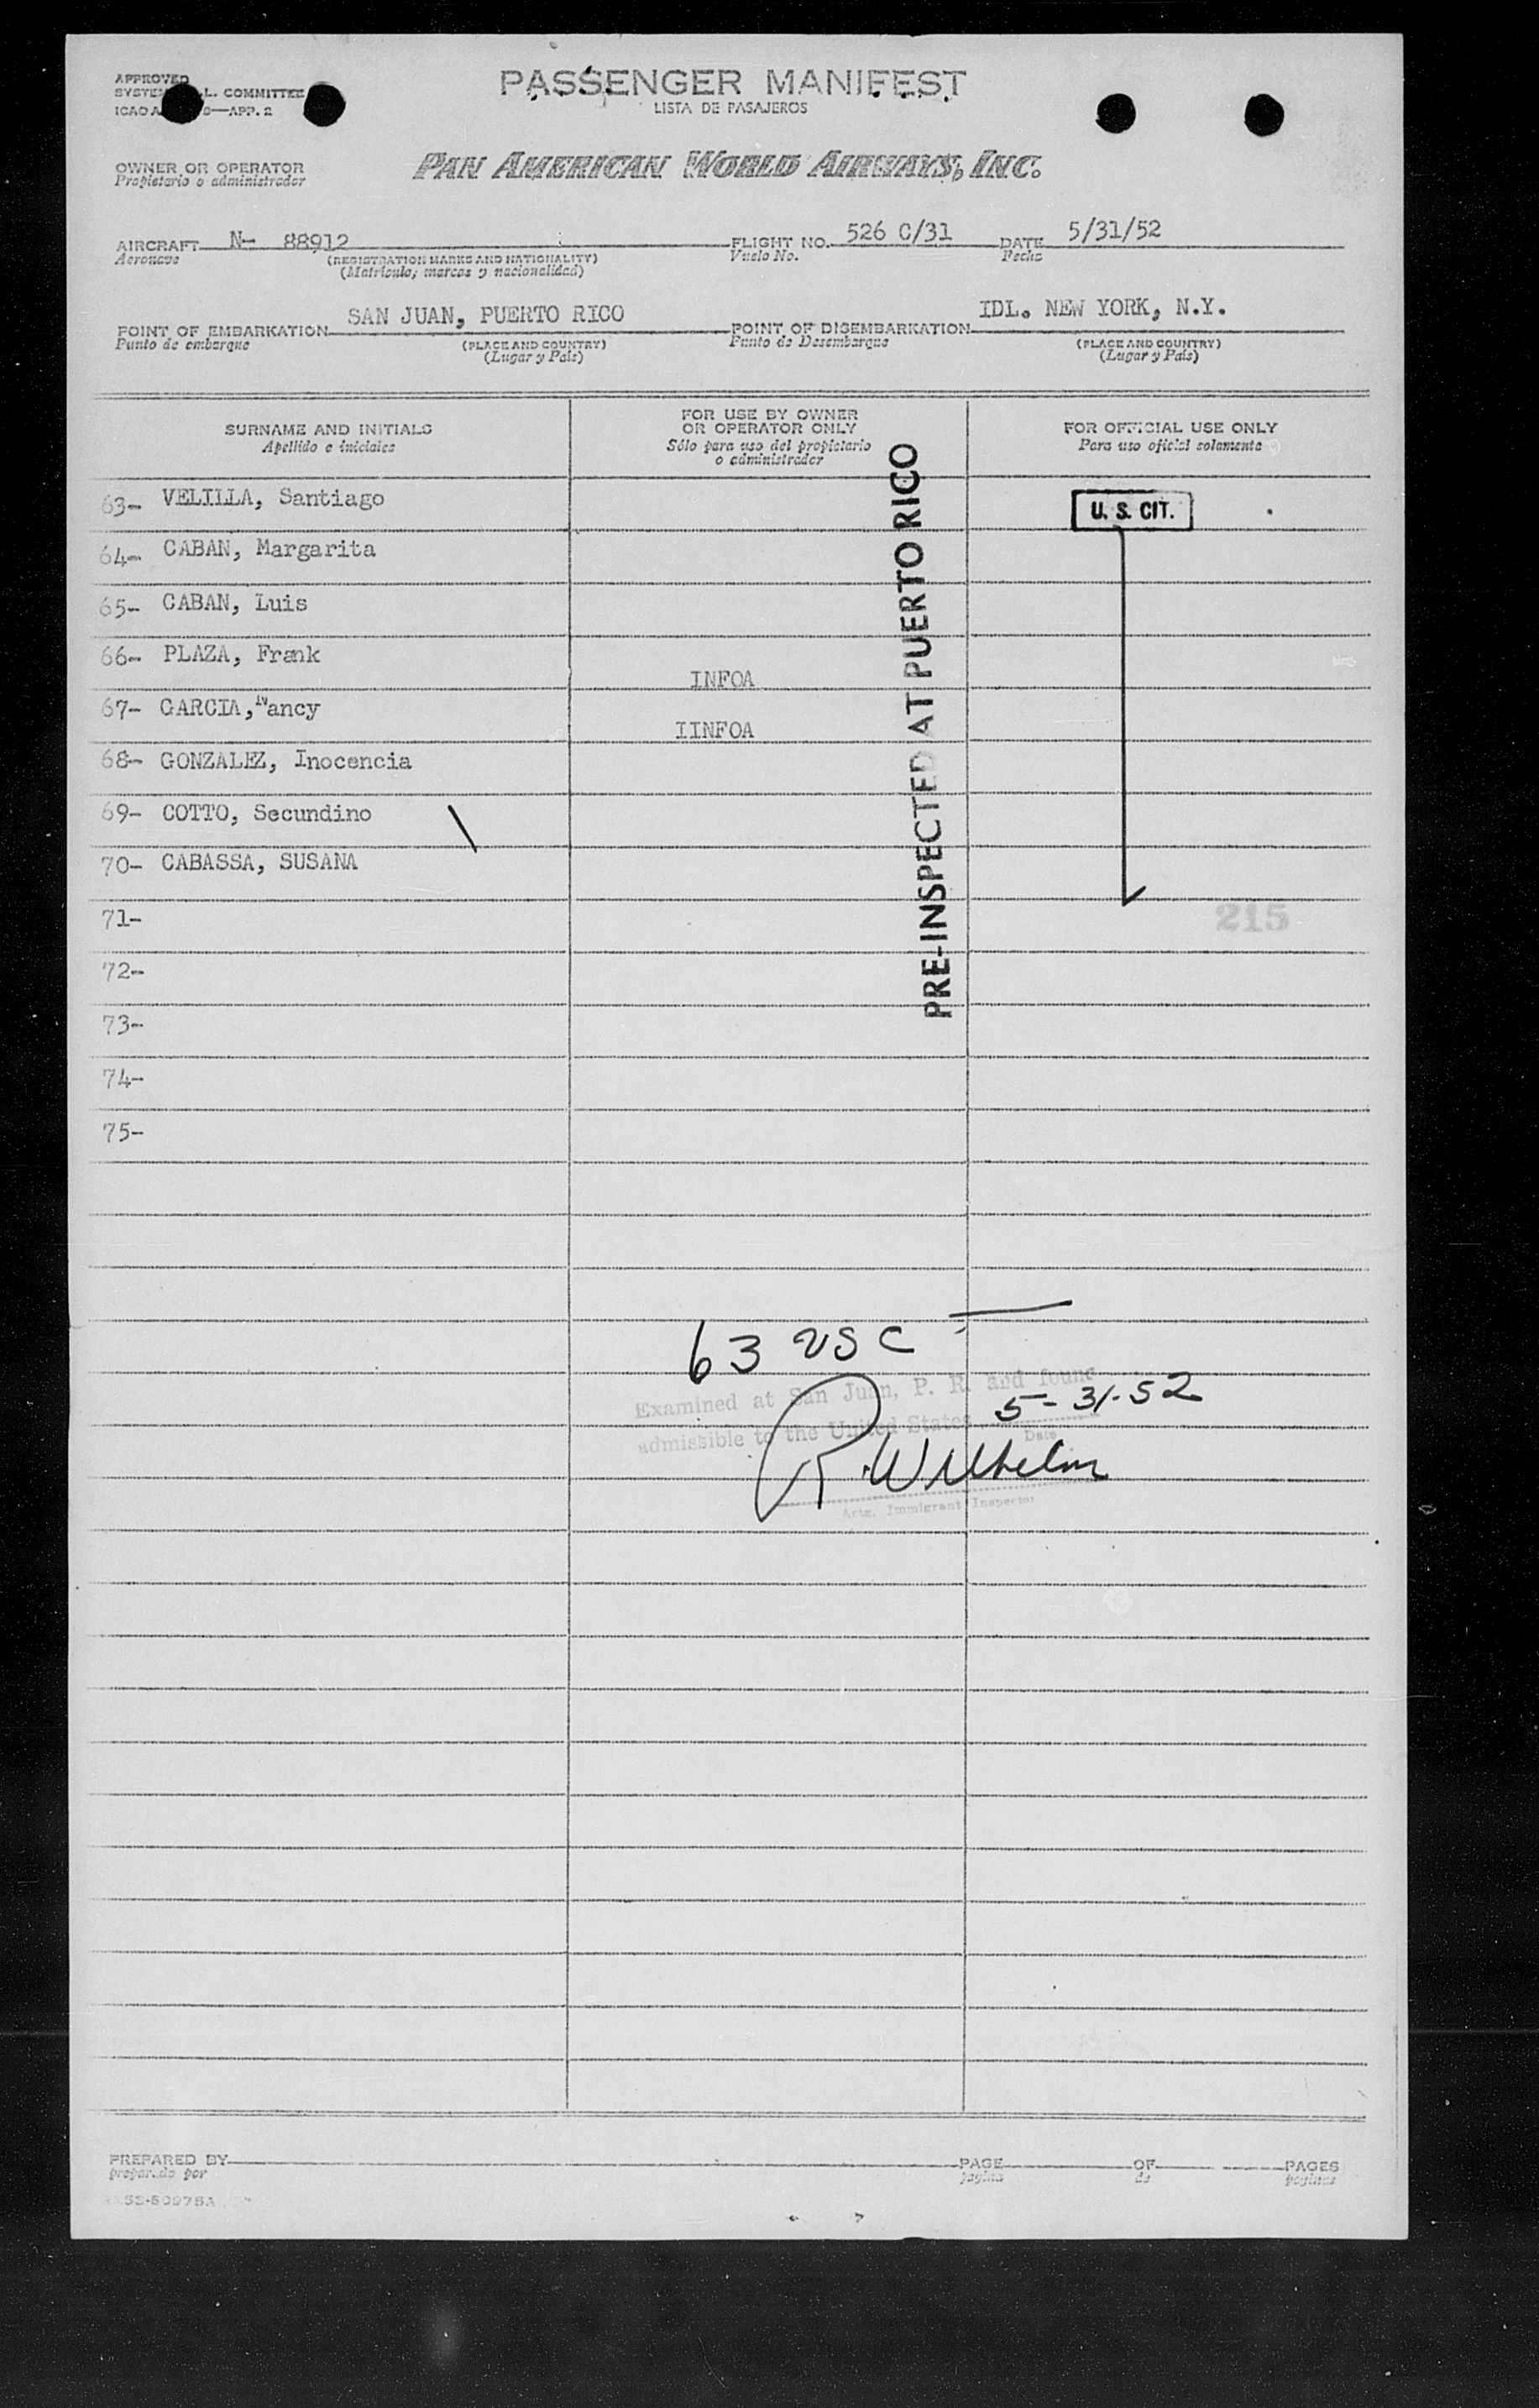 APPROVED
PASSENGER MANIFEST
L. COMMITTEE
LISTA DE PASAJEROS
ICAO —APP. 2
OWNER OR OPERATOR
Propietario o administrador
PAN AMERICAN WORLD AIRWAYS, INC.
AIRCRAFT N- 88912 FLIGHT NO. 526 C/31 DATE 5/31/52
Aeronave (REGISTRATION MARKS AND NATIONALITY) Vuelo No. Fecha
(Matrícula, marcas y nacionalidad)
POINT OF EMBARKATION SAN JUAN, PUERTO RICO POINT OF DISEMBARKATION IDL. NEW YORK, N.Y.
Punto de embarque (PLACE AND COUNTRY) Punto de Desembarque (PLACE AND COUNTRY)
(Lugar y País) (Lugar y País)
SURNAME AND INITIALS
Apellido e iniciales
FOR USE BY OWNER
OR OPERATOR ONLY
Sólo para uso del propietario
o administrador
FOR OFFICIAL USE ONLY
Para uso oficial solamente
PRE-INSPECTED AT PUERTO RICO
63- VELILLA, Santiago U. S. CIT.
64- CABAN, Margarita
65- CABAN, Luis
66- PLAZA, Frank INFOA
67- GARCIA, Nancy IINFOA
68- GONZALEZ, Inocencia
69- COTTO, Secundino
70- CABASSA, SUSANA
71- 215
72-
73-
74-
75-
63 USC
Examined at San Juan, P. R. and found
5-31-52
admissible to the United States
Date
R. Wilhelm
Actg. Immigrant Inspector
PREPARED BY PAGE OF PAGES
preparado por página de páginas